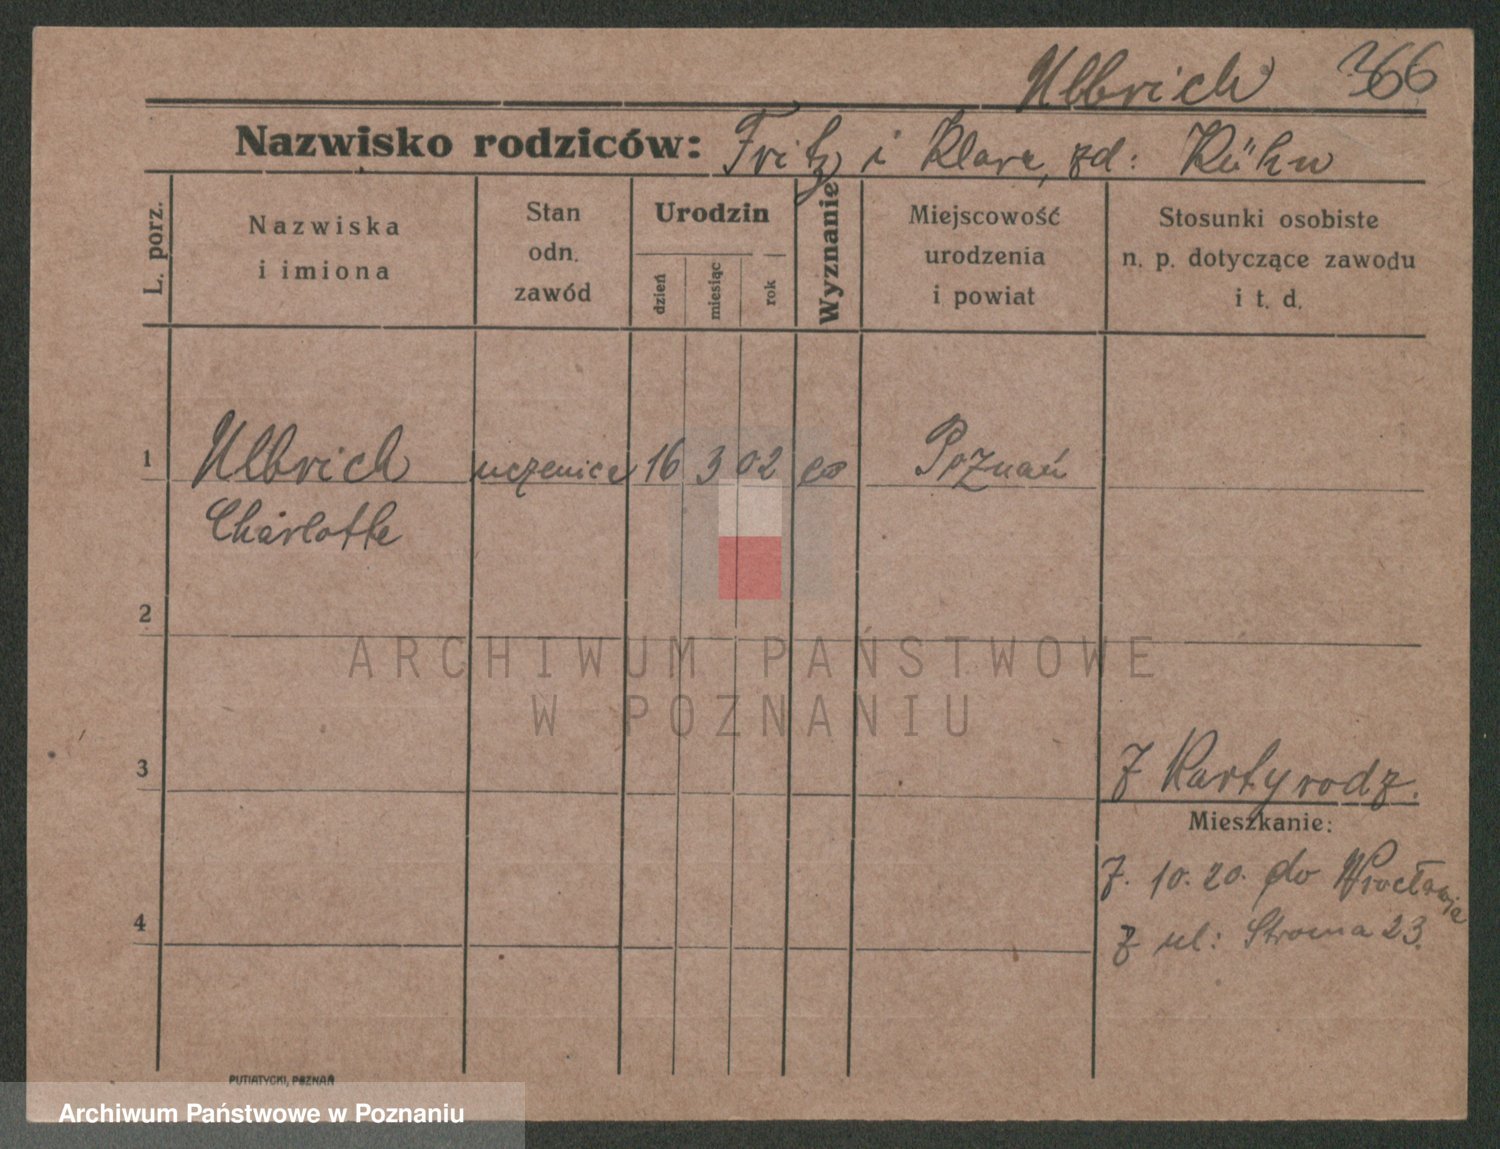 Ulbrich 366
Nazwisko rodziców: Fritz i Klara, zd: Kühn
L. porz.
Nazwiska
i imiona
Stan
odn.
zawód
Urodzin
dzień
miesiąc
rok
Wyznanie
Miejscowość
urodzenia
i powiat
Stosunki osobiste
n. p. dotyczące zawodu
i t. d.
1 Ulbrich uczenica 16 3 02 Poznań
Charlotte
2
3
Z Karty rodz.
Mieszkanie:
7. 10. 20. do Wrocławia
4
z ul: Stroma 23.
PUTIATYCKI, POZNAŃ
ARCHIWUM PAŃSTWOWE
W POZNANIU
Archiwum Państwowe w Poznaniu